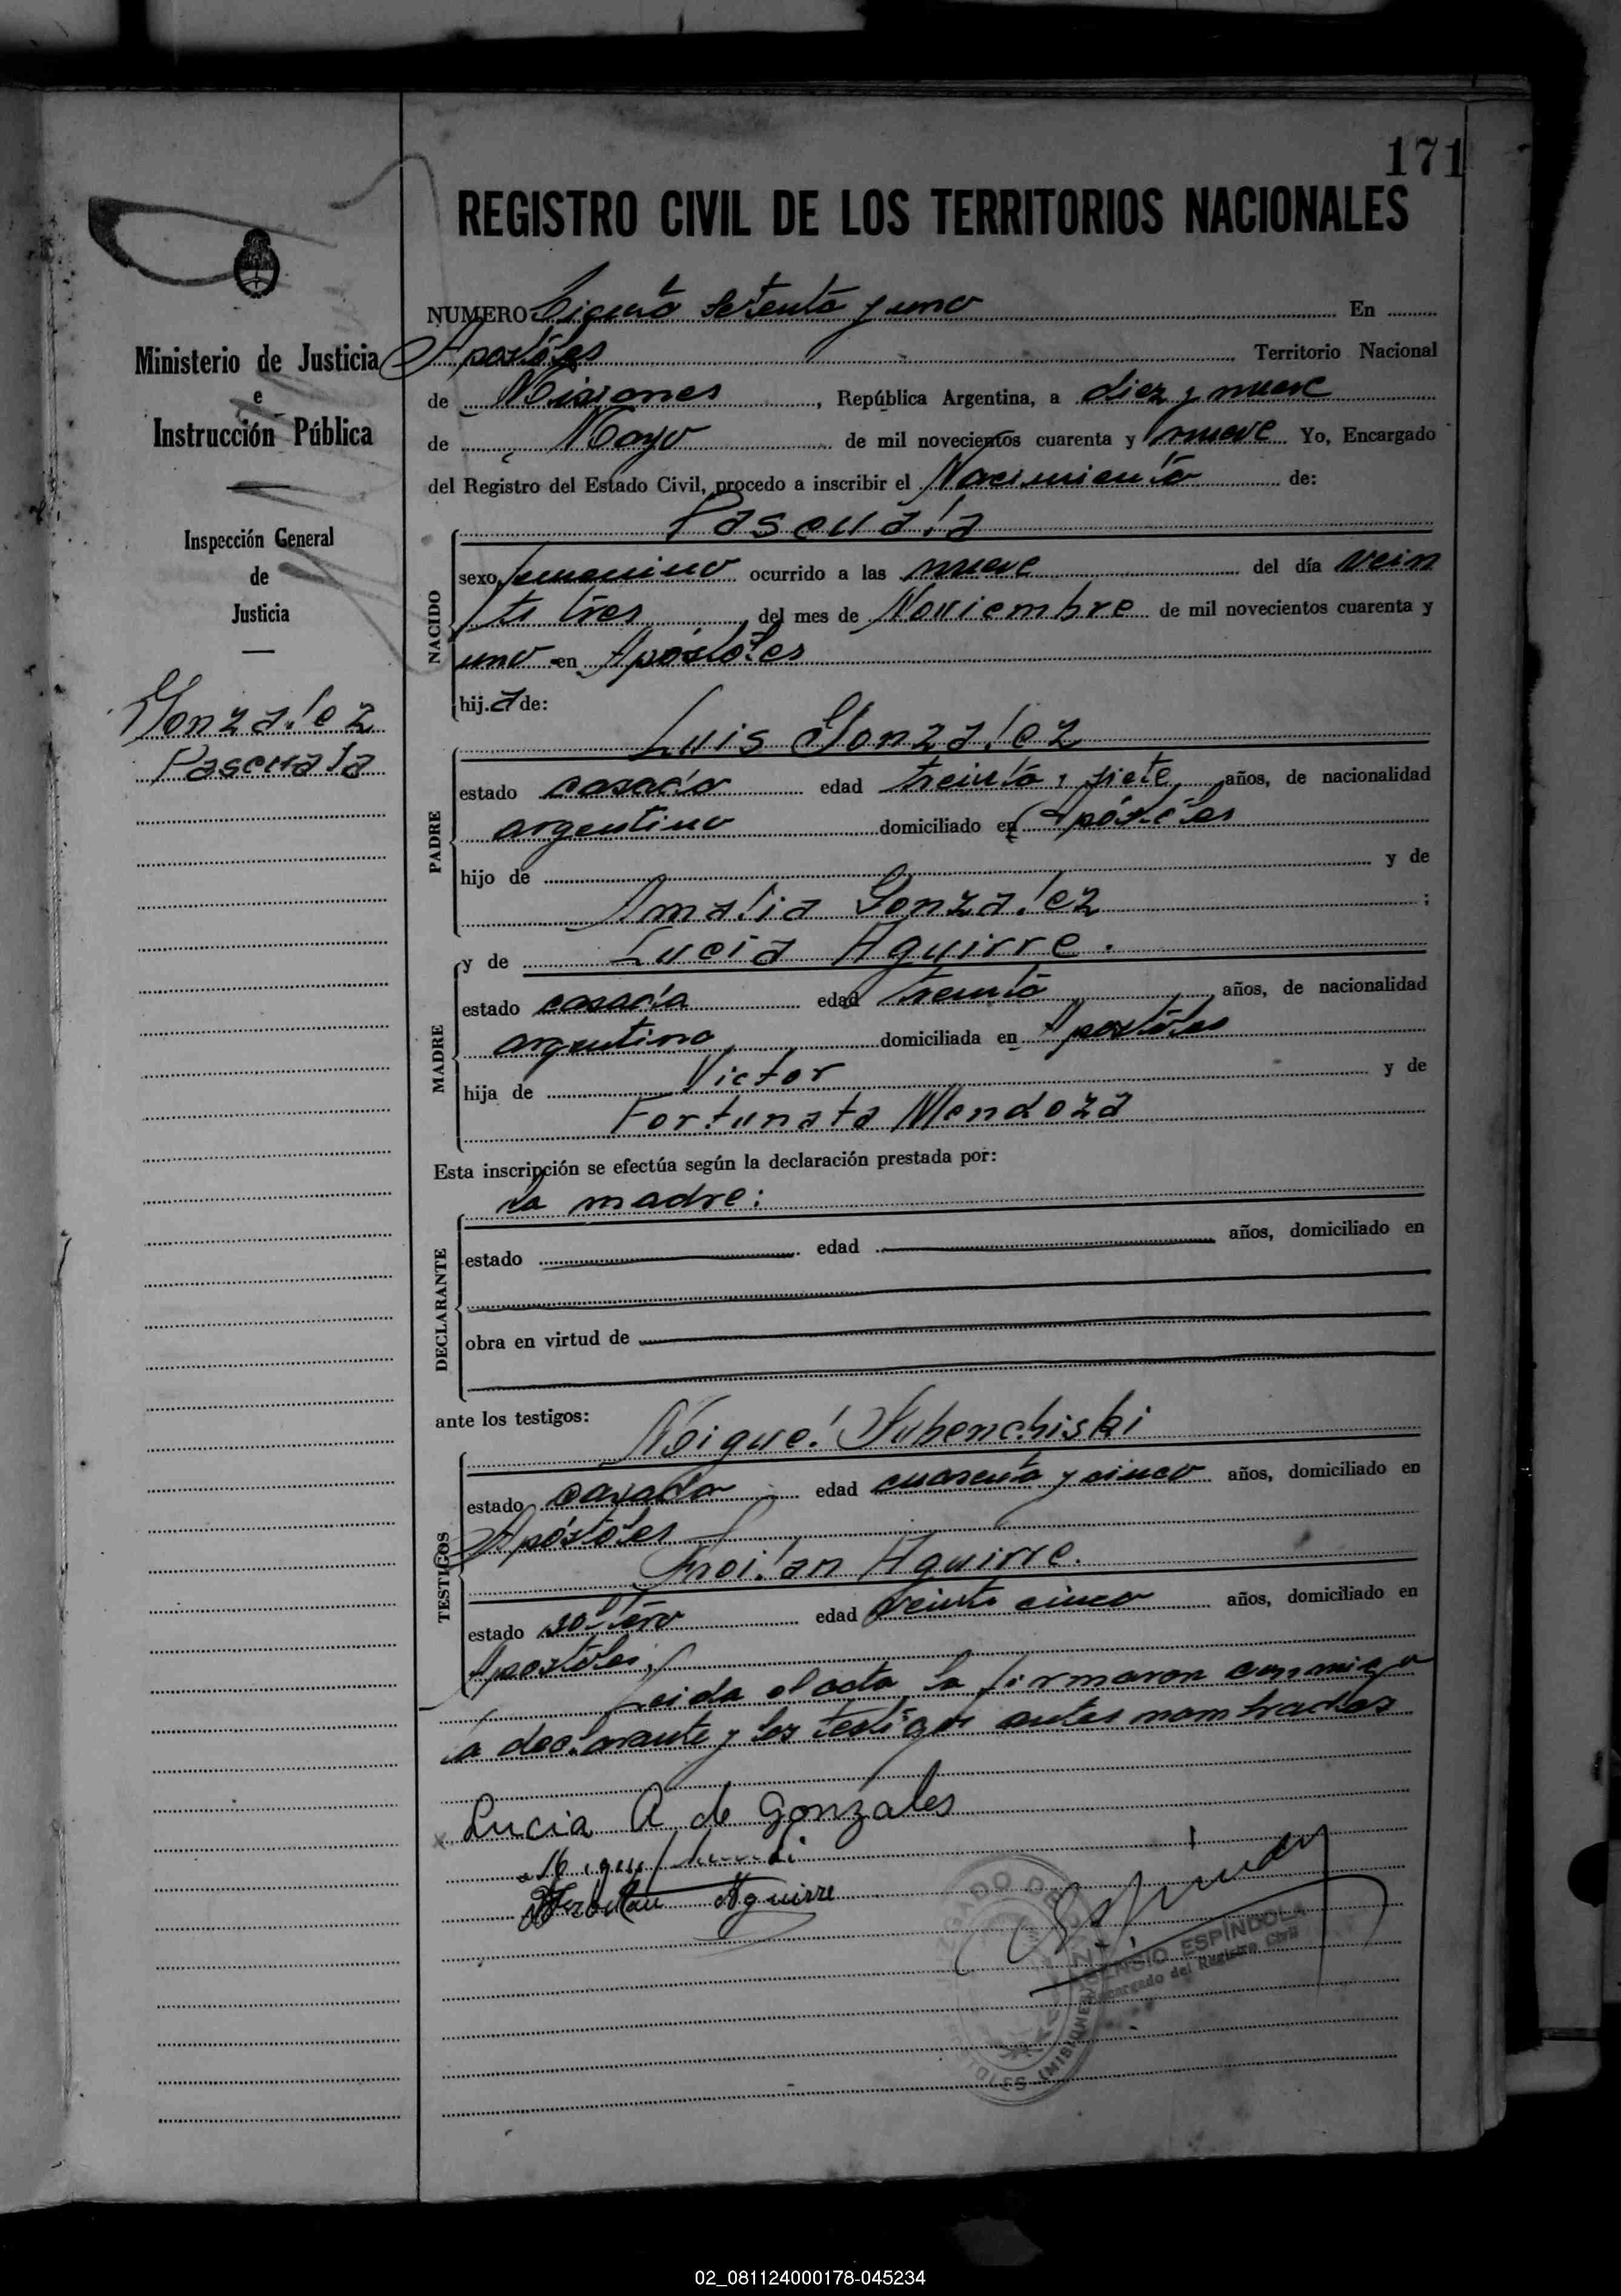 171
REGISTRO CIVIL DE LOS TERRITORIOS NACIONALES
Ministerio de Justicia
e
Instrucción Pública
Inspección General
de
Justicia
Gonzalez
Pascuala
NUMERO setenta y uno En
Apostoles Territorio Nacional
de Misiones, República Argentina, a diez y nueve
de Mayo de mil novecientos cuarenta y nueve Yo, Encargado
del Registro del Estado Civil, procedo a inscribir el Nacimiento de:
Pascuala
NACIDO
sexo femenino ocurrido a las nueve del día vein
ti tres del mes de Noviembre de mil novecientos cuarenta y
uno en Apóstoles
hija de:
Luis Gonzalez
PADRE
estado casado edad treinta y siete años, de nacionalidad
argentino domiciliado en Apóstoles
hijo de y de
Amalia Gonzalez ;
y de Lucia Aguirre.
MADRE
estado casada edad treinta años, de nacionalidad
argentina domiciliada en Apostoles
hija de Victor y de
Fortunata Mendoza
Esta inscripción se efectúa según la declaración prestada por:
la madre:
DECLARANTE
estado edad años, domiciliado en
obra en virtud de
ante los testigos:
Miguel
TESTIGOS
estado casado edad cuarenta y cinco años, domiciliado en
Apóstoles
Froilan Aguirre.
estado soltero edad veinte cinco años, domiciliado en
Apostoles.
Leida el acta la firmaron conmigo
la declarante y los testigos antes nombrados
Lucia A de Gonzales
Aguirre
ASENSIO ESPÍNDOLA
Encargado del Registro Civil
02_081124000178-045234